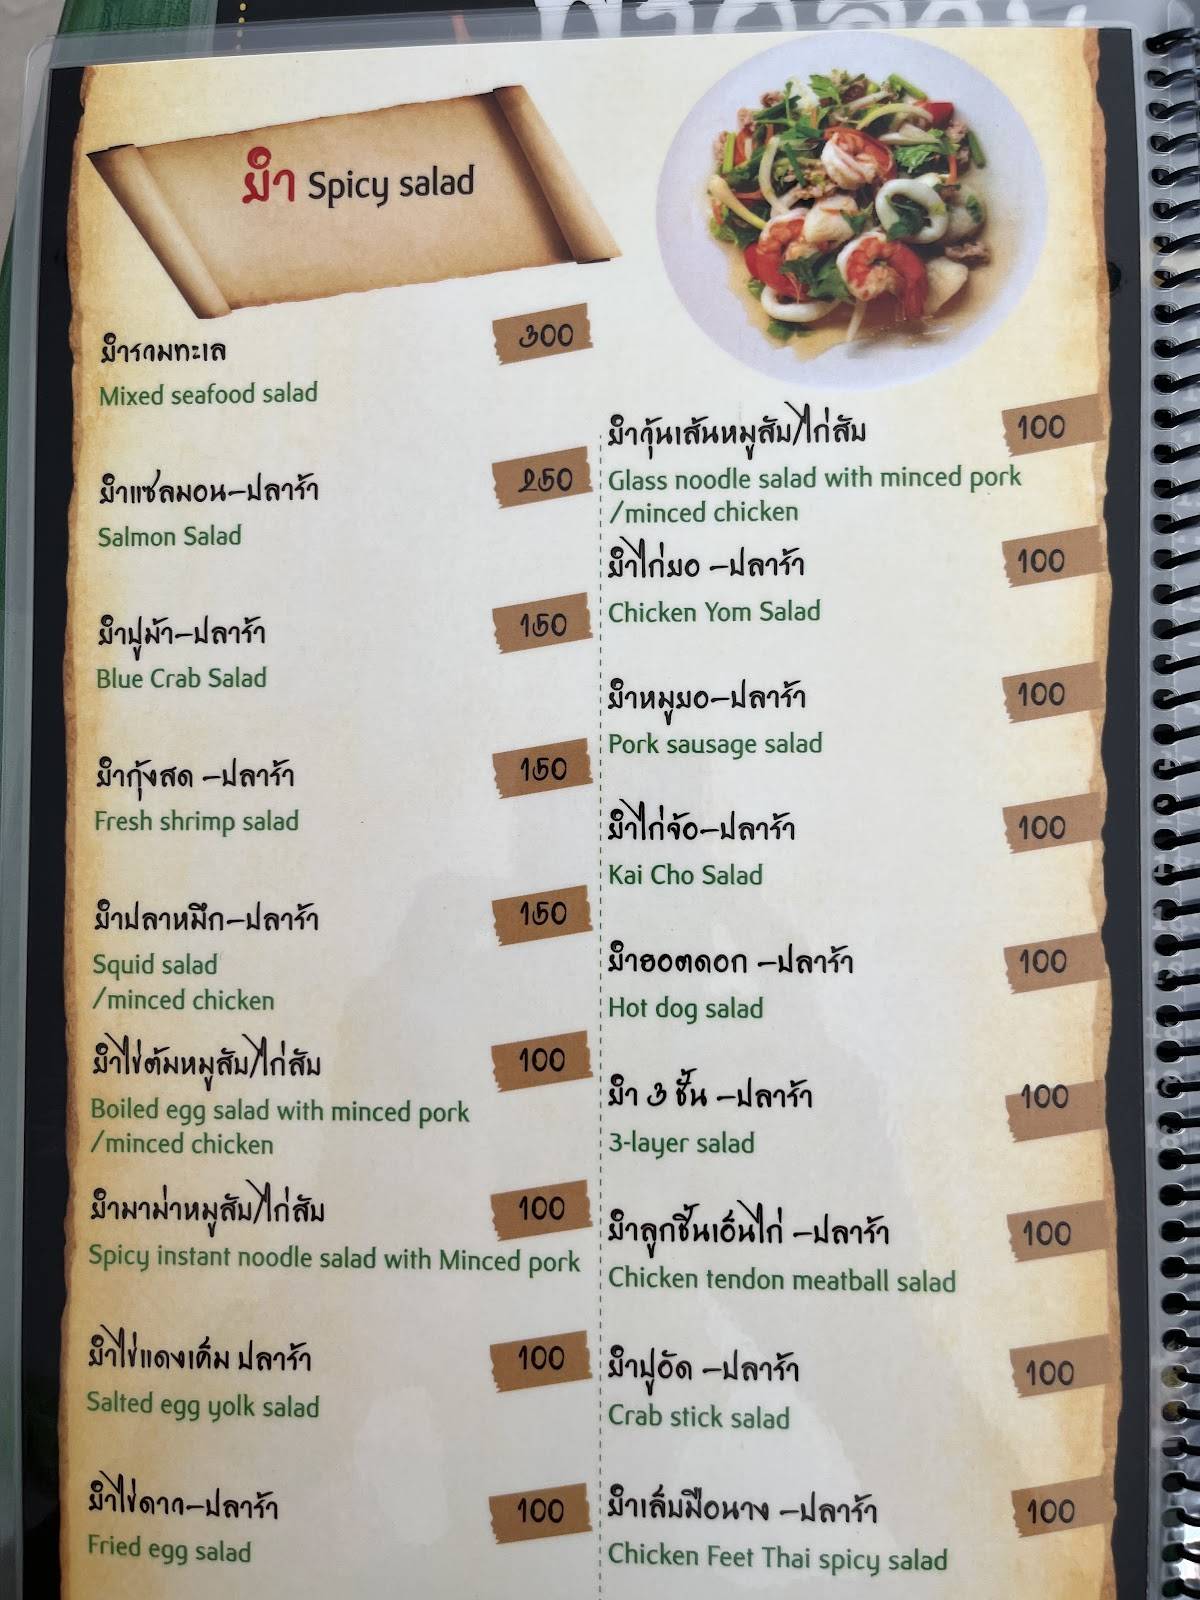 ยำ Spicy salad
ยำรวมทะเล 300
Mixed seafood salad
ยำแซลมอน-ปลาร้า 250
Salmon Salad
ยำปูม้า-ปลาร้า 150
Blue Crab Salad
ยำกุ้งสด -ปลาร้า 150
Fresh shrimp salad
ยำปลาหมึก-ปลาร้า 150
Squid salad
/minced chicken
ยำไข่ต้มหมูสับ/ไก่สับ 100
Boiled egg salad with minced pork
/minced chicken
ยำมาม่าหมูสับ/ไก่สับ 100
Spicy instant noodle salad with Minced pork
ยำไข่แดงเค็ม ปลาร้า 100
Salted egg yolk salad
ยำไข่ดาว-ปลาร้า 100
Fried egg salad
ยำวุ้นเส้นหมูสับ/ไก่สับ 100
Glass noodle salad with minced pork
/minced chicken
ยำไก่ยอ -ปลาร้า 100
Chicken Yom Salad
ยำหมูยอ-ปลาร้า 100
Pork sausage salad
ยำไก่จ้อ-ปลาร้า 100
Kai Cho Salad
ยำฮอตดอก -ปลาร้า 100
Hot dog salad
ยำ 3 ชั้น -ปลาร้า 100
3-layer salad
ยำลูกชิ้นเอ็นไก่ -ปลาร้า 100
Chicken tendon meatball salad
ยำปูอัด -ปลาร้า 100
Crab stick salad
ยำเล็บมือนาง -ปลาร้า 100
Chicken Feet Thai spicy salad